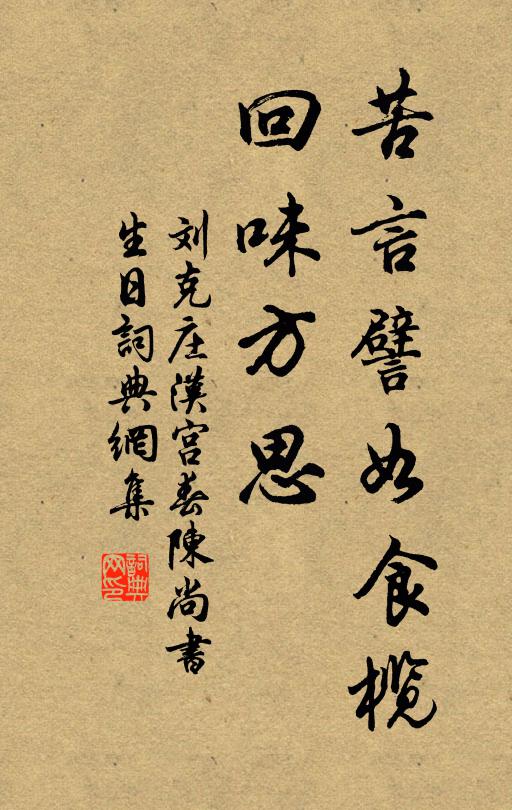 苦言譬如食榄
回味方思
刘克庄漢宮春陳尚書
生日詞典網集
詞典
网印